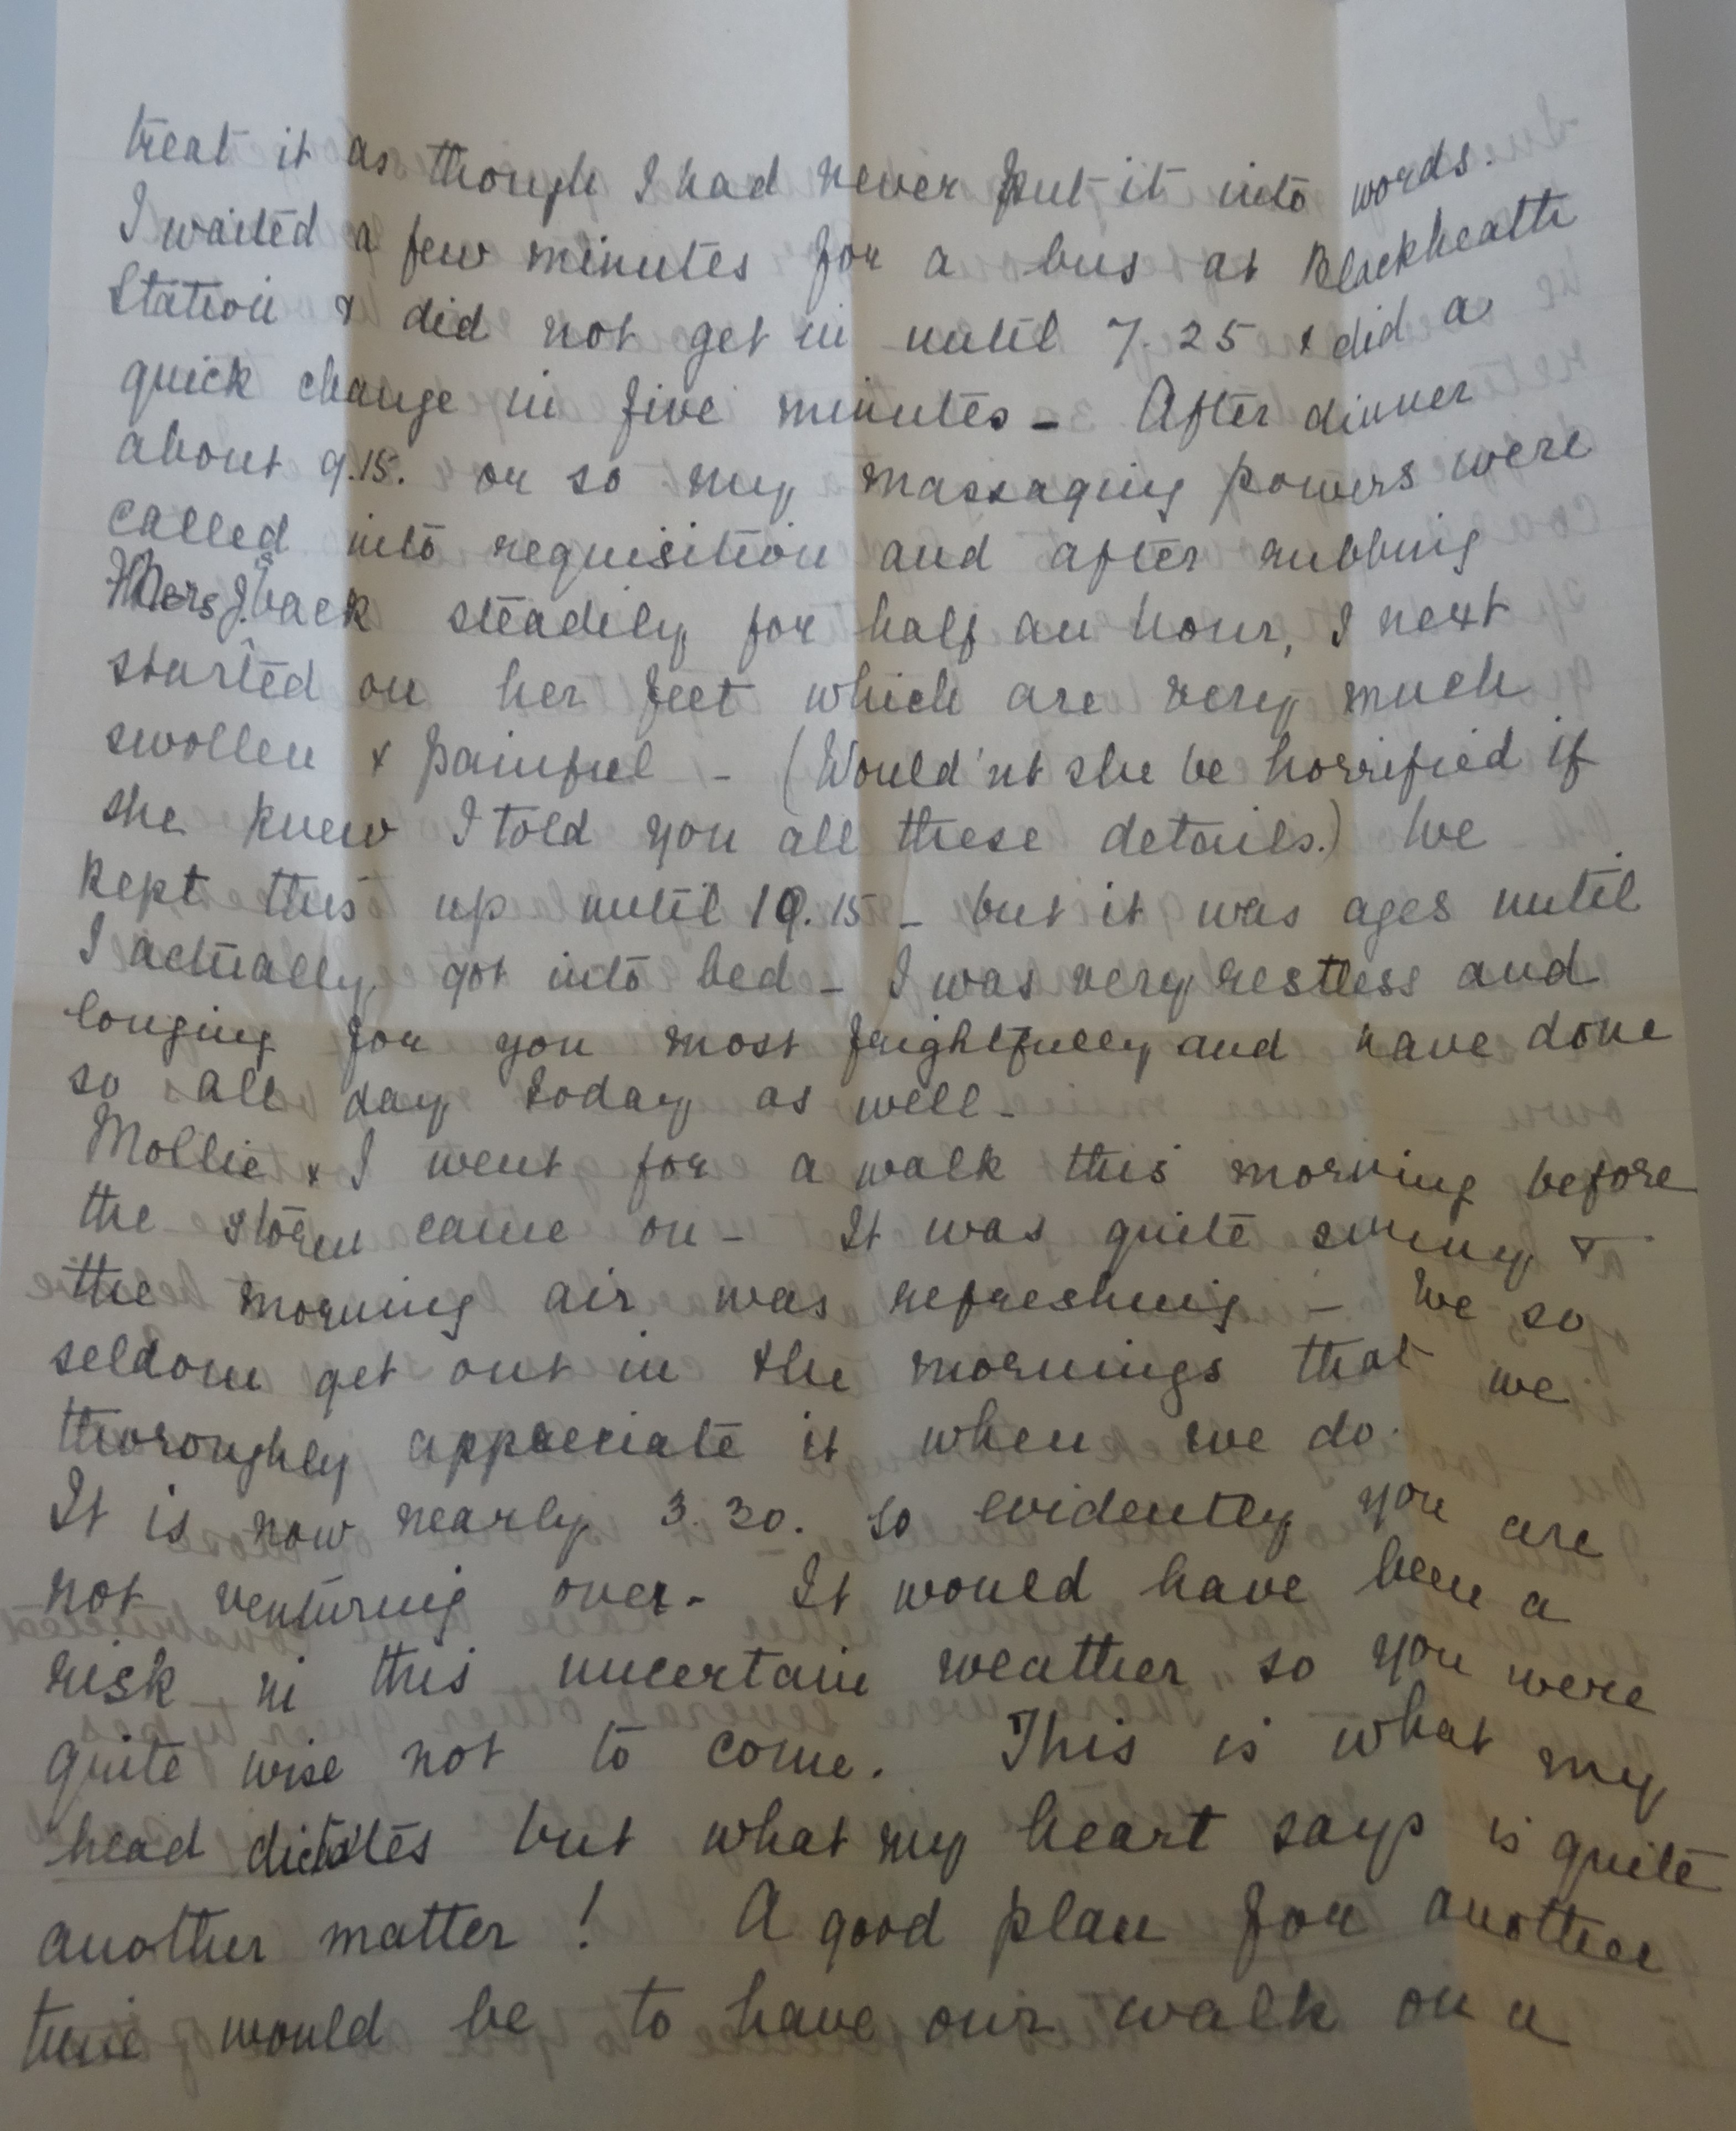 treat it as though I had never put it into words.
I waited a few minutes for a bus at Blackheath
Station & did not get in until 7.25 & did a
quick change in five minutes - After dinner
about 9.15. or so my massaging powers were
called into requisition and after rubbing
Mrs J.'s back steadily for half an hour, I next
started on her feet which are very much
swollen & painful - (Would'nt she be horrified if
she knew I told you all these details.) We
kept this up until 10.15 - but it was ages until
I actually got into bed - I was very restless and
longing for you most frightfully and have done
so all day today as well -
Mollie & I went for a walk this morning before
the storm came on - It was quite sunny &
the morning air was refreshing - We so
seldom get out in the mornings that we
thoroughly appreciate it when we do.
It is now nearly 3.30. so evidently you are
not venturing over - It would have been a
risk in this uncertain weather so you were
quite wise not to come. This is what my
head dictates but what my heart says is quite
another matter! A good plan for another
time would be to have our walk on a